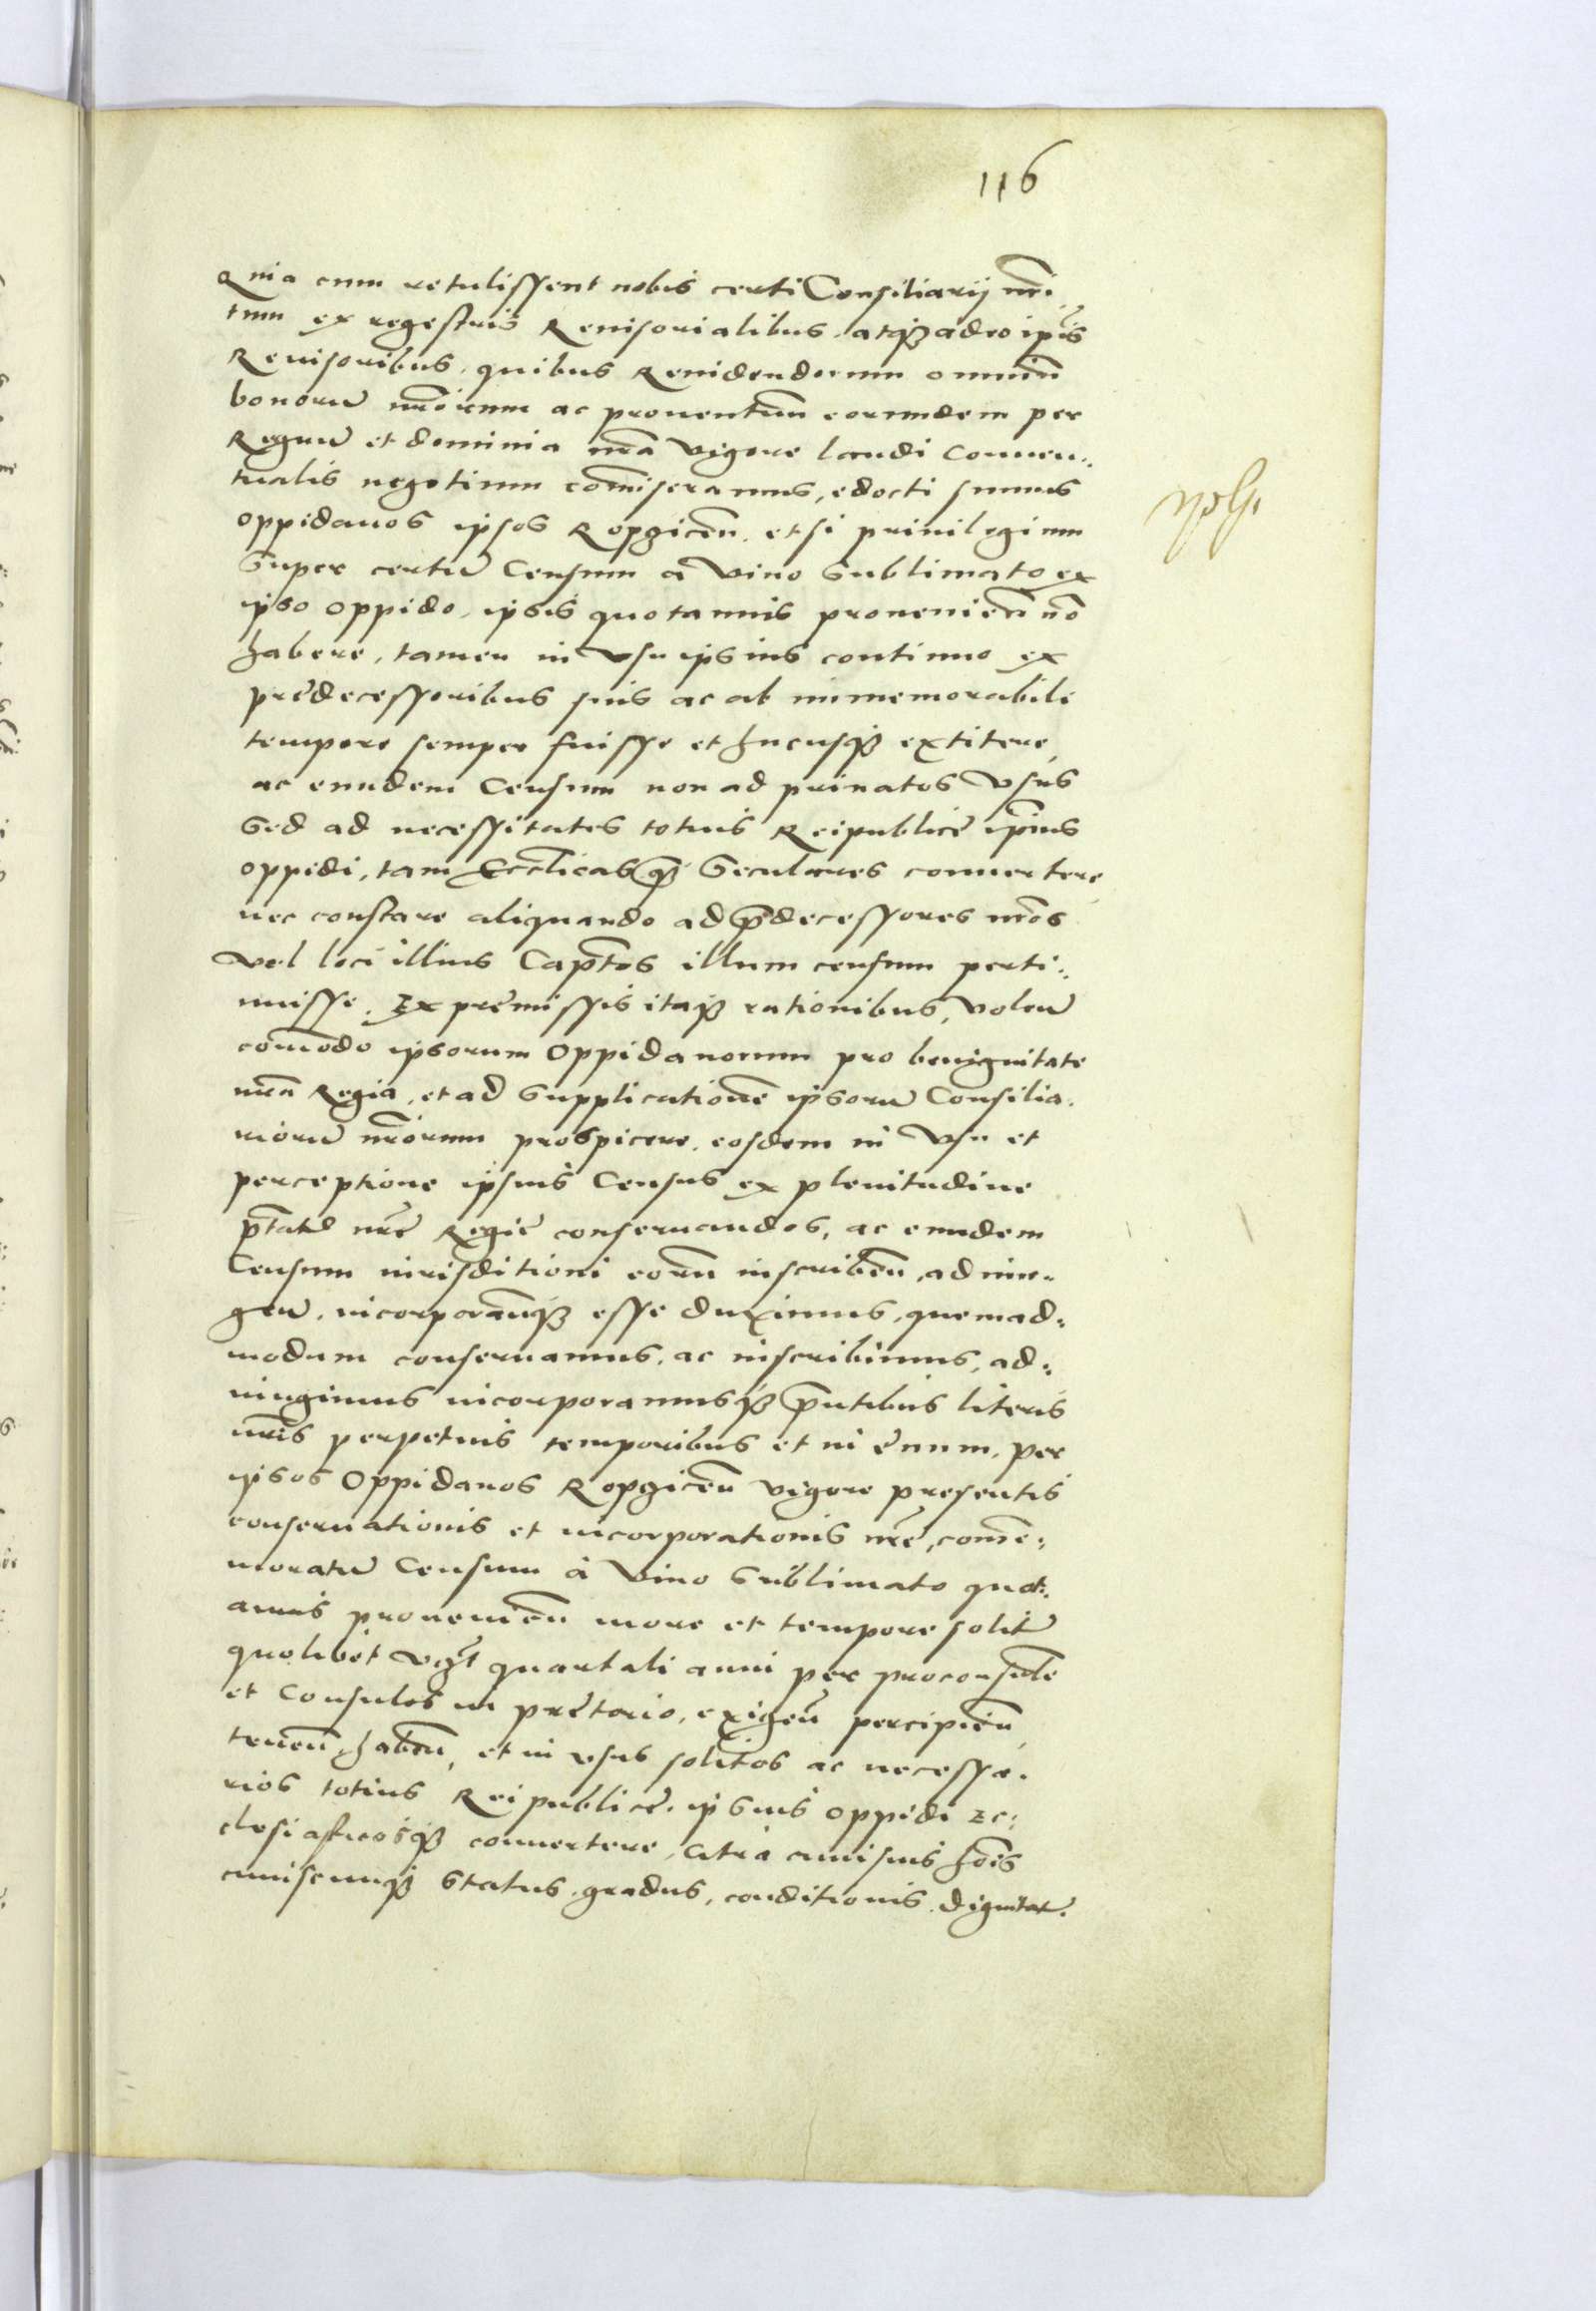 116
Quia cum retulissent nobis certi Consiliarij nr̃i
tum ex regestris Reuisorialibus, atq̃ꝫ adeo ip̃is
Reuisoribus, quibus Reuidendorum omniũ
bonorũ nr̃orum ac prouentuũ eorundem per
Regnũ et dominia nr̃a vigore laudi Conuen:
tualis negotium com̃iseramus, edocti sumus
oppidanos ipsos Ropzicen̄. etsi priuilegium
super certũ Censum a vino sublimato ex
ipso oppido, ipsis quotannis prouenien̄ nõ
habere, tamen in vsu ipsius continuo ex
prędecessoribus suis ac ab immemorabili
tempore semper fuisse et hucusq̃ꝫ extitere,
ac eundem Censum non ad priuatos vsus
sed ad necessitates totius Reipublicę ip̃ius
oppidi, tam Eccl̃icas q̃ꝫ seculares conuertere
nec constare aliquando ad p̃decessores nr̃os
vel loci illius Capit̃os illum censum perti:
nuisse. Ex pręmissis itaqꝫ rationibus, volen̄
com̃odo ipsorum Oppidanorum pro benignitate
nr̃a Regia, et ad supplicationẽ ipsorũ Consilia.
riorũ nr̃orum prospicere, eosdem in vsu et
perceptione ipsius Census ex plenitudine
p̃tatis nr̃ę Regię conseruandos, ac eundem
Censum iurisditioni eorũ inscriben̄, adiun-
gen̄, incorporan̄qꝫ esse duximus, quemad:
modum conseruamus, ac inscribimus, ad:
iungimus incorporamusqꝫ p̃ntibus literis
nr̃is perpetuis temporibus et in ęuum, per
ipsos Oppidanos Ropzicen̄ vigore presentis
conseruationis et incorporationis nr̃ę, com̃e:
moratũ Censum à vino sublimato quot:
annis prouenien̄ more et tempore solit̃
quolibet vꝫt quartali anni per proconsulẽ
et Consules in prętorio, exigen̄ percipien̄,
tenen̄, haben̄, et in vsus solitos ac necessa.
rios totius Reipublicę, ipsius oppidi Ec:
clesiasticosqꝫ conuertere, citra cuiusuis ho̊is
cuiuscunqꝫ status, gradus, conditionis, dignitat̃.